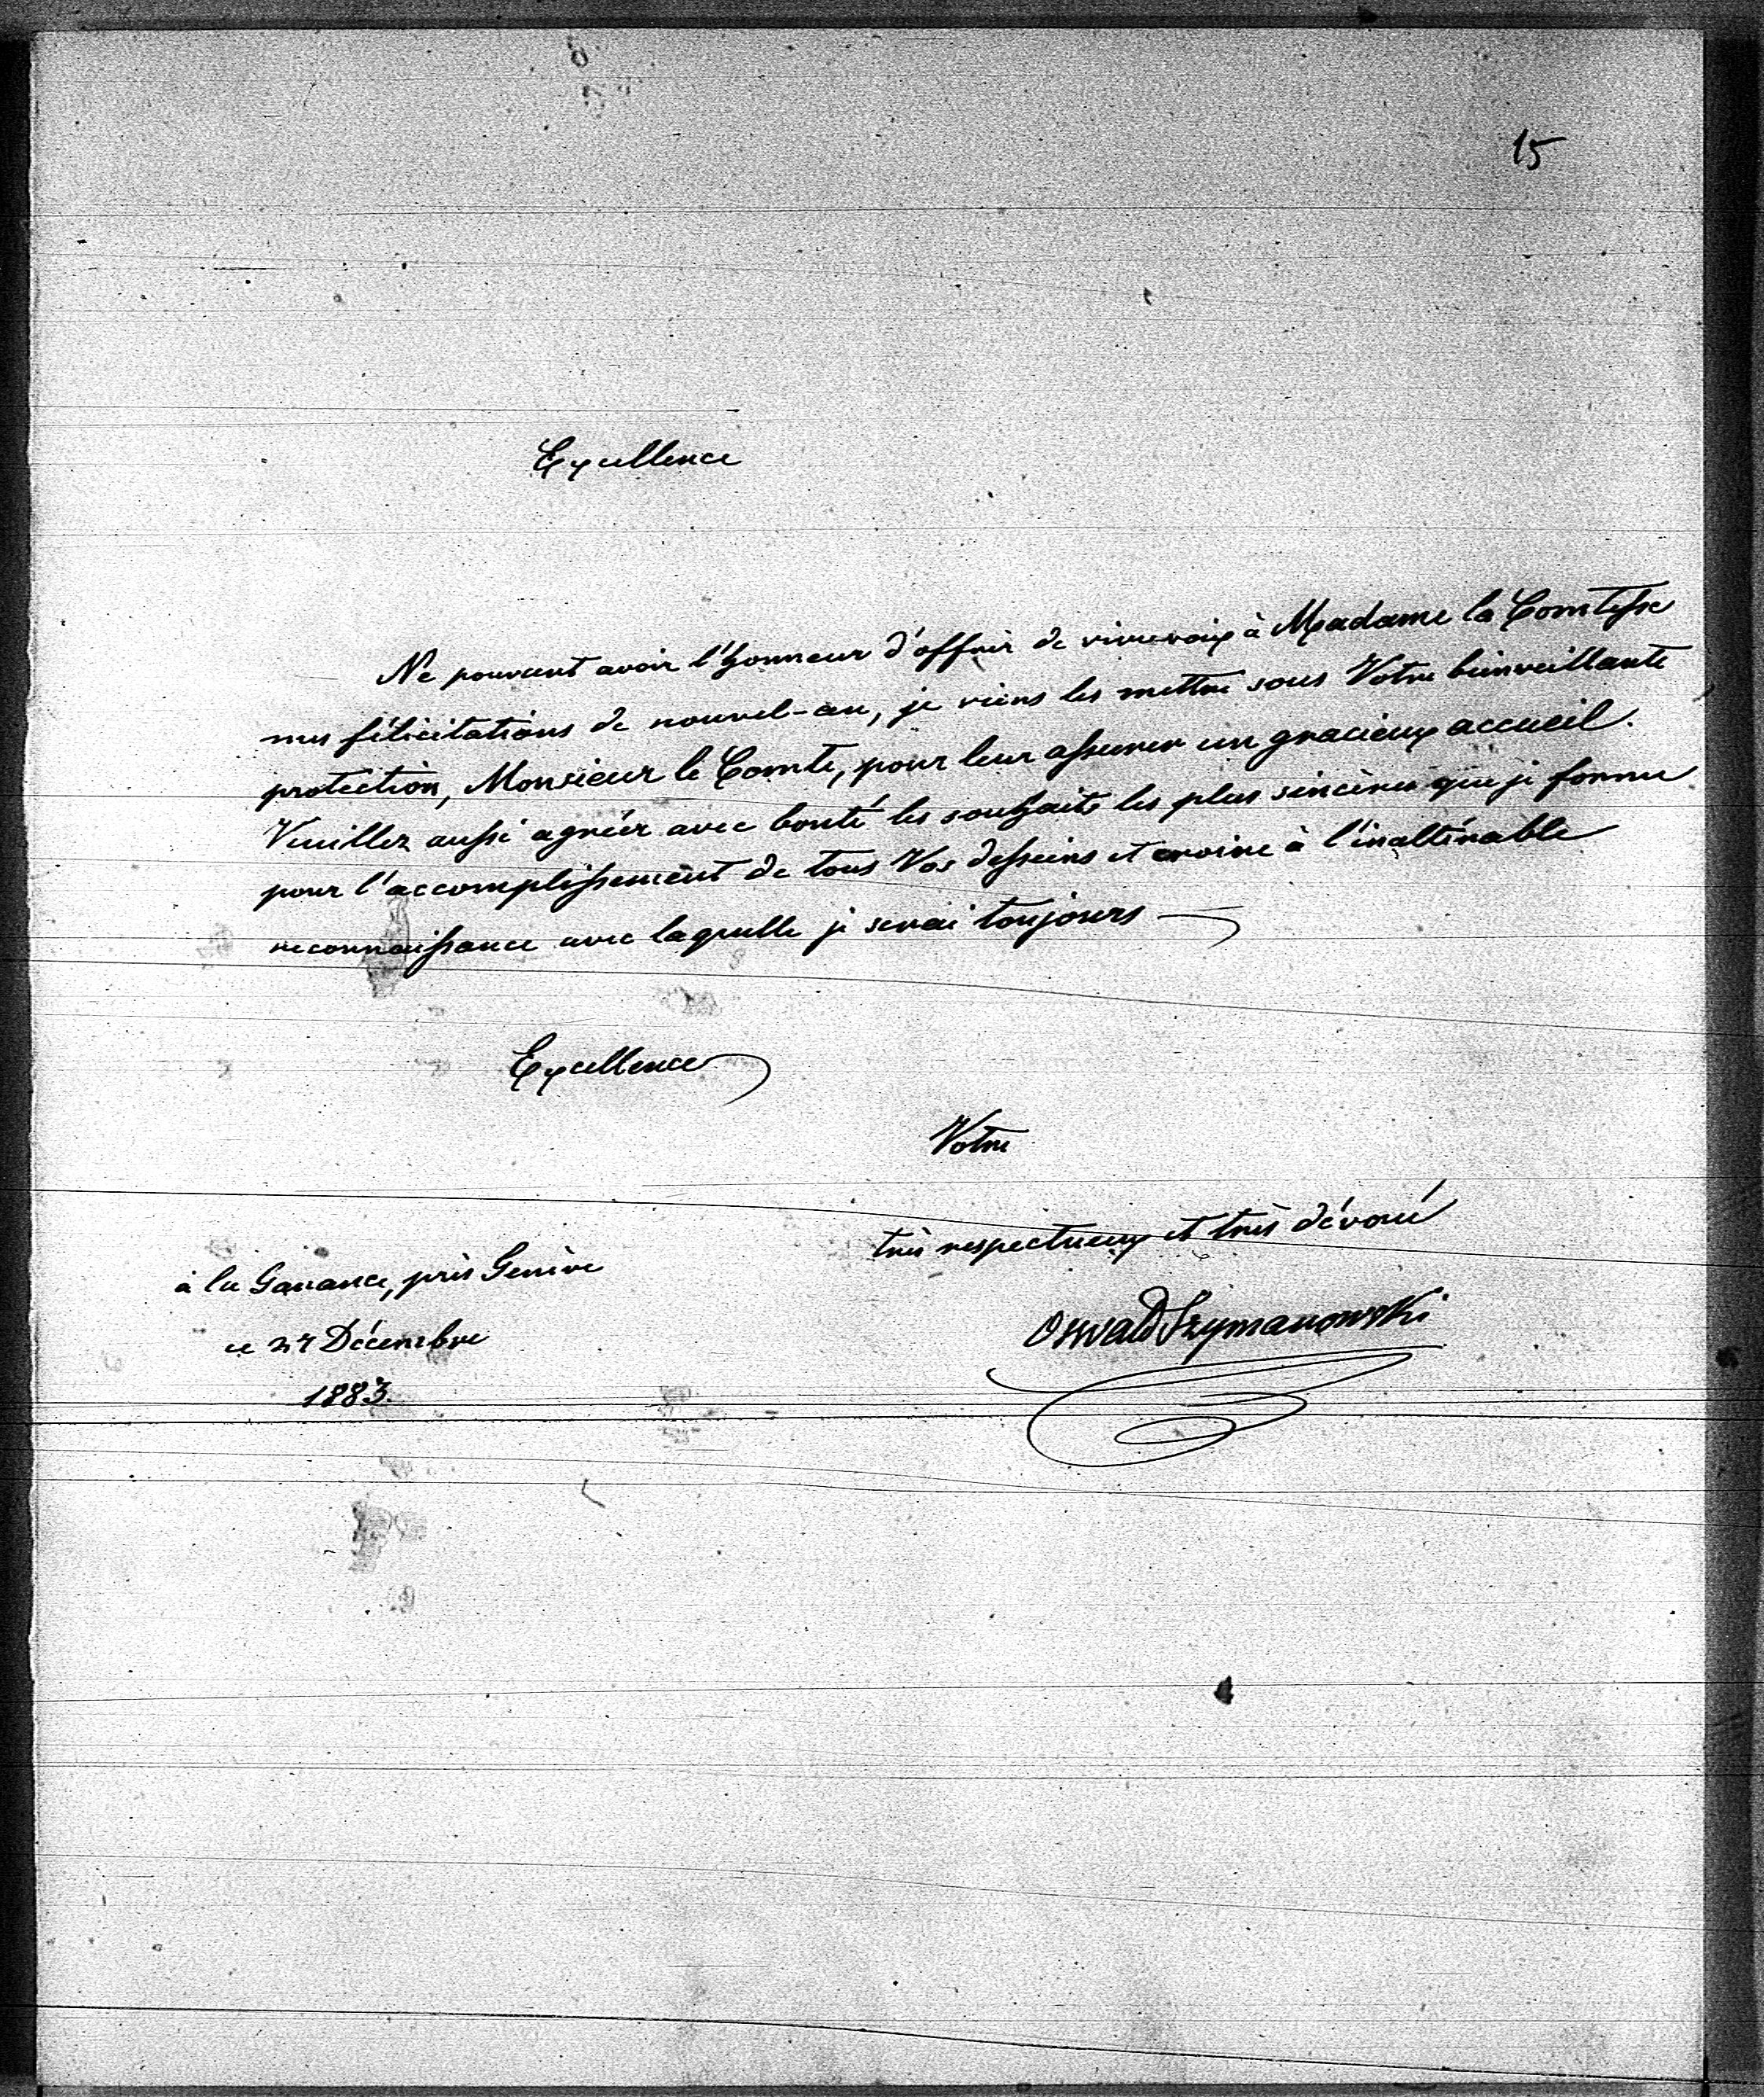 15
Excellence
Ne pouvant avoir l'honneur d'offrir de vive voix à Madame la Comtesse
mes félicitations de nouvel-an, je viens les mettre sous Votre bienveillante
protection, Monsieur le Comte, pour leur assurer un gracieux accueil.
Veuillez aussi agréer avec bonté les souhaits les plus sincères que je forme
pour l'accomplissement de tous Vos desseins et croire à l'inaltérable
reconnaissance avec laquelle je serai toujours
Excellence
Votre
très respectueux et très dévoué
à la près Genève
Oswald Szymanowski
ce 27 Décembre
1883.